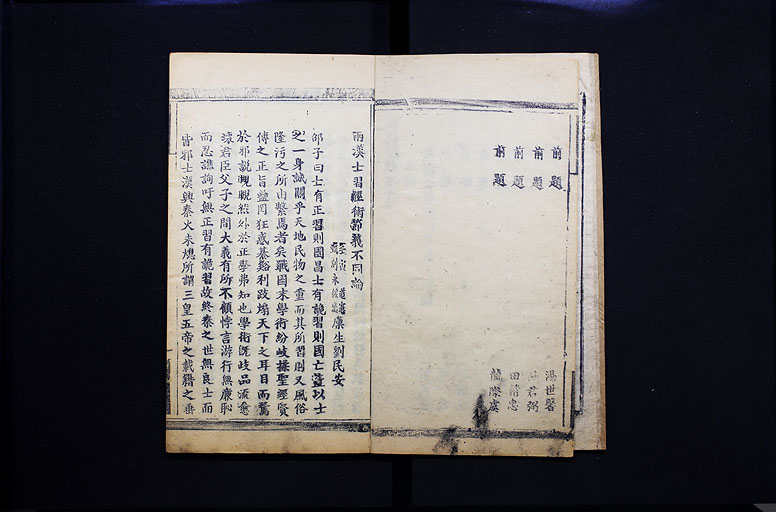 前題 湯世馨
前題 君弼
前題 田 忠
前題 蕭際虞
兩漢士習經術節義不同論
壬寅
廩生劉民安
邵子曰士有正習則國昌士有詭習則國亡蓋以士
之一身誠關乎天地民物之重而其所習則又風俗
隆污之所由繫焉者矣戰國末學術紛岐掭聖經賢
傳之正旨盡罔狂惑基谿利跂塌天下之耳目而驚
於邪說覼覼然外於正學弗知也學術既歧品流愈
壞君臣父子之間大義有所不顧悖言游行無廉恥
而忍譙詢吁無正習有詭習故終秦之世無良士而
皆邪士漢興秦火未熄所謂三皇五帝之載籍之垂